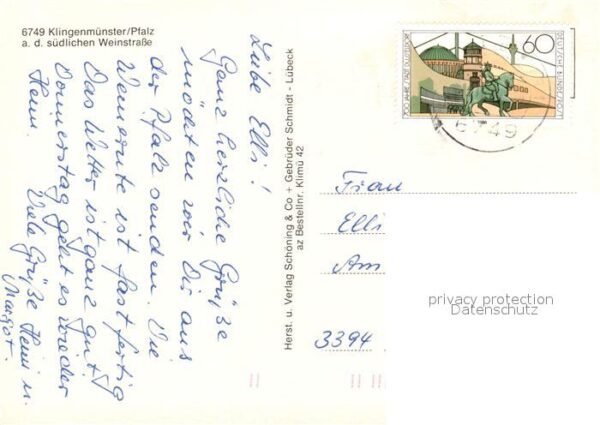 6749 Klingenmünster/Pfalz
a. d. südlichen Weinstraße
Liebe Elli!
Ganz herzliche Grüße
möchten wir Dir aus
der Pfalz senden. Die
Weinernte ist fast fertig
Das Wetter ist ganz gut
Donnerstag geht es wieder
Heim.
Viele Grüße Heini u.
Margot.
Herst. u. Verlag Schöning & Co + Gebrüder Schmidt - Lübeck
az Bestellnr. Klimü 42
60
DEUTSCHE BUNDESPOST
700 JAHRE STADT DÜSSELDORF
6749
Frau
Elli
Am
3394
privacy protection
Datenschutz